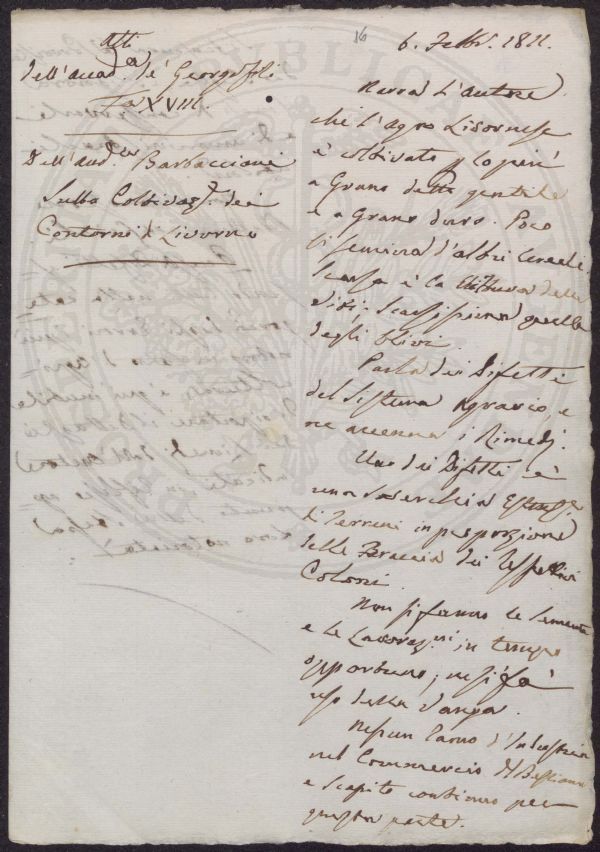 Atti
dell'Accad.a de' Georgofili
To. XVIII.
Dell'Aud.re Barbaccioni
Sulla Coltivaz.e dei
Contorni di Livorno
16
6. Febb. 1811.
Narra l'autore
che l'agro Livornese
è coltivato p lo più
a Grano detto gentile
e a Grano duro. Poco
si semina d'altri Cereali.
Scarsa è la Cultura delle
Viti; Scarsissima quella
degli Olivi.
Parla dei Difetti
del Sistema Agrario, e
ne accenna i Rimedj.
Uno dei Difetti è
una soverchia Estens.e
di Terreni in proporzione
delle Braccia dei respettivi
Coloni.
Non si fanno le Semente
e le Lavoraz.ni in tempo
opportuno; ne si fà
uso della Vanga.
Nessun ramo d'Industria
nel Commercio di Bestiame
e scapito continuo per
questa parte.